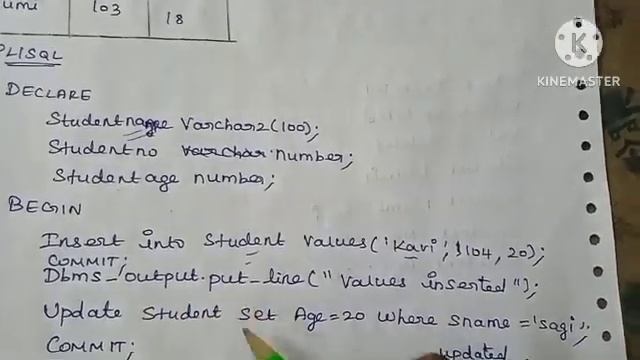 umi 103 18
PL|SQL
DECLARE
Studentname Varchar2(100);
Studentno number;
Student age number;
BEGIN
Insert into Student values('Kavi', 104, 20);
COMMIT;
Dbms_output.put_line("values inserted");
Update Student set Age=20 where sname='sagi';
COMMIT;
updated
KINEMASTER